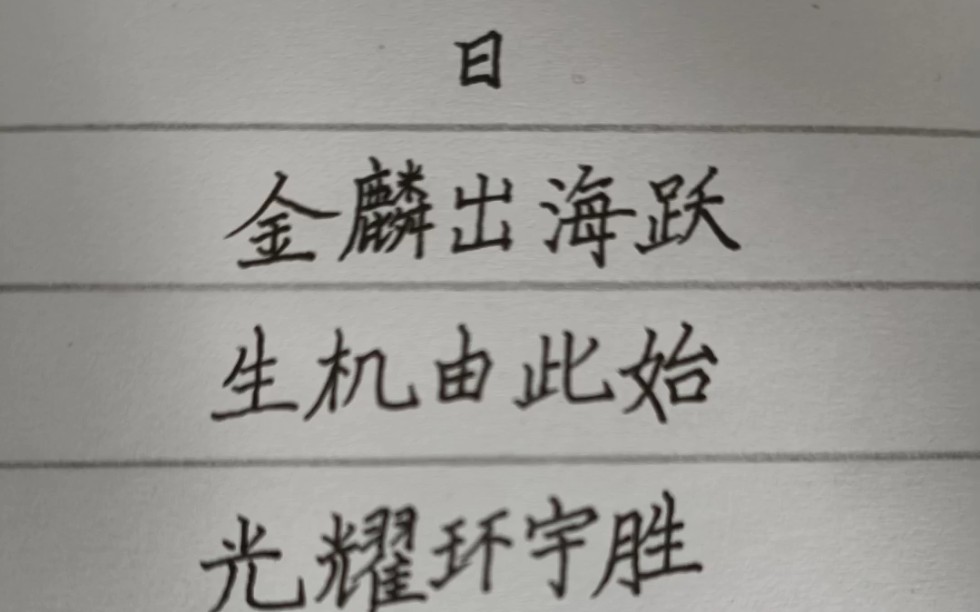 日
金麟出海跃
生机由此始
光耀环宇胜